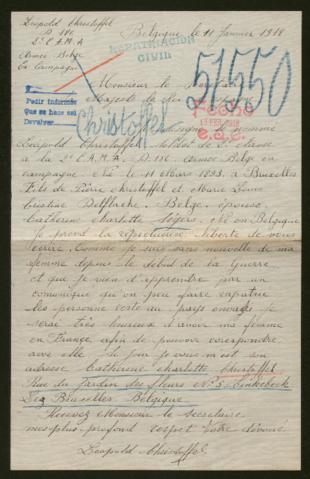 Leopold Christoffel
D 186
2e C.A.M.A
Armée Belge
En Campagne
Belgique le 11 Janvier 1918
REPATRIACION
CIVIL
51550
Monsieur le
Majesté
Pedir informes
Que se hace así
Devolver
Christoffel
FEBRO
15 FEB 1918
e.a.c.
le nommé
Leopold Christoffel Soldat de 2e classe
à la 2e C.A.M.A. D.186 armée Belge en
campagne Né le 11 Mars 1893 à Bruxelles
Fils de Pierre Christoffel et Marie Louise
Belge, épouse
Catherine Charlotte Segers, Né en Belgique
Je prend la respectueuse liberté de vous
écrire. Comme je suis sans nouvelle de ma
femme depuis le début de la Guerre
et que je vien d'apprendre par un
comuniqué qu'on peu faire
les personne reste au pays envahi je
serai très heureux d'avoir ma femme
en France, afin de pouvoir corespondre
avec elle. je vous met son
adresse Catherine Charlotte Christoffel
Rue du Jardin des fleurs No 5 Linkebeek
Lez Bruxelles. Belgique
Recevez Monsieur le Secretaire
mes plus profond respect Votre dévoué
Leopold Christoffel